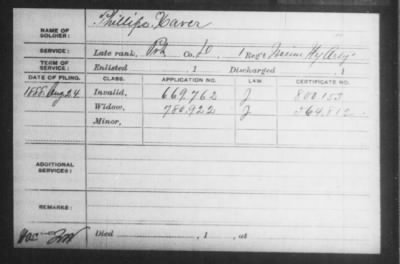 Phillips, Xaver
NAME OF SOLDIER:
SERVICE: Late rank, Pvt Co. 1 Reg't Hy. Arty.
TERM OF SERVICE: Enlisted , 1 Discharged , 1
DATE OF FILING. CLASS. APPLICATION NO. LAW CERTIFICATE NO.
1888 Aug 24 Invalid, 669.762 J 800.153
Widow, 780.922 J 564.812
Minor,
ADDITIONAL SERVICES:
REMARKS:
Died , 1 , at